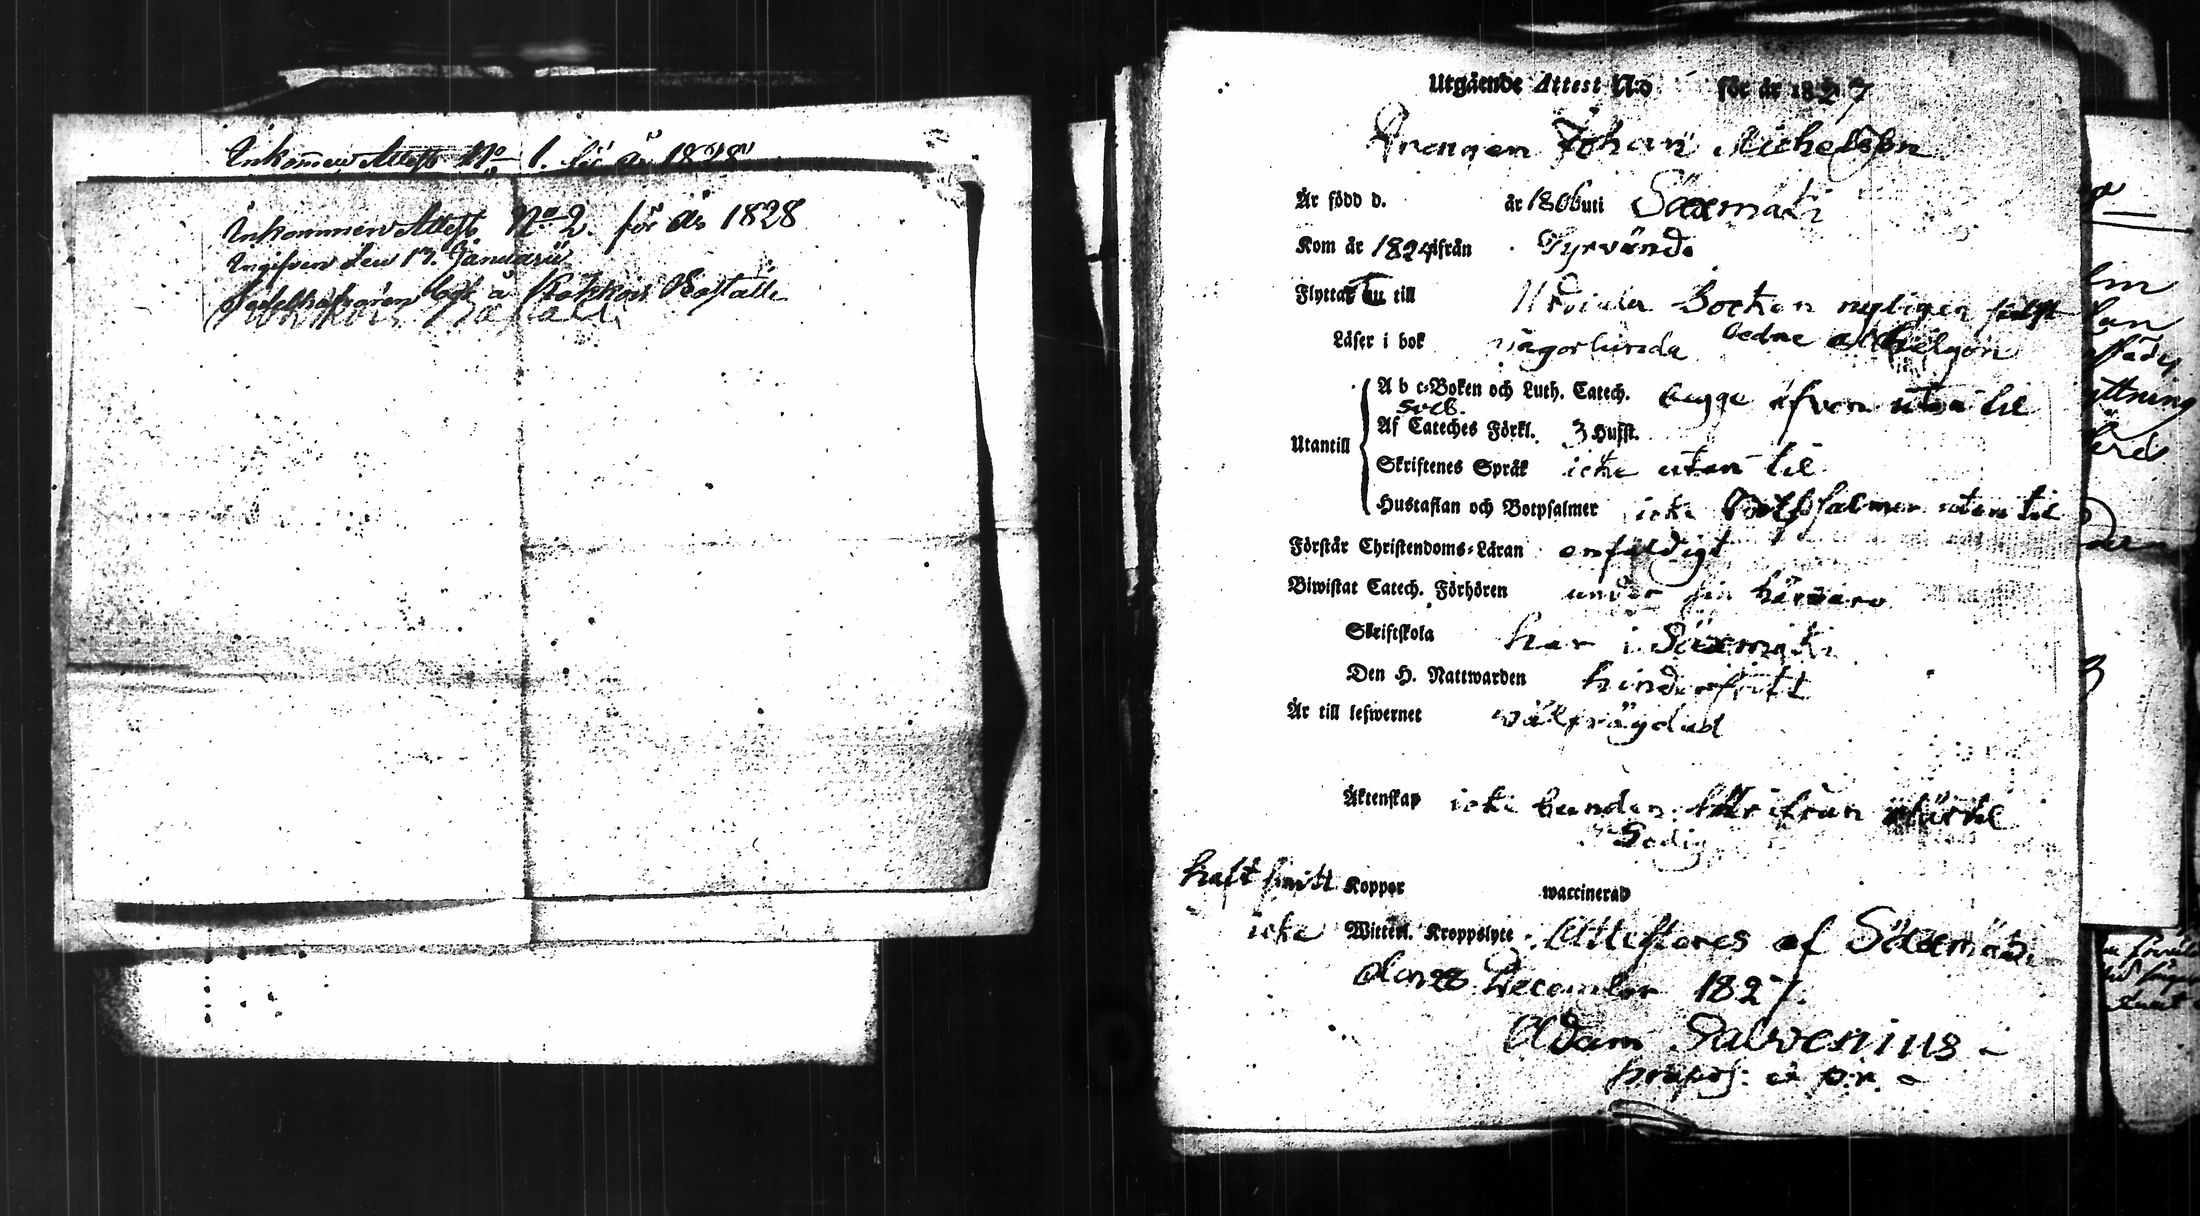 Inkommen Attest No 1. för år 1828
Inkommen Attest No 2. för År 1828
Ingifven den 17. Januarii
å Kokkois Koställe
Utgående Attest N:o för år 1827
Drengen Johan Michelsson
Är född d. år 1806 uti Säxmäki
Kom år 1824 ifrån Tyrvändö
Flyttar nu till Urdiala Socken nyligen
Läser i bok någorlunda
A b c-Boken och Luth. Catech. begge äfven utan til
Sveb.
Af Cateches Förkl. 3 Hufst.
Utantill
Skriftenes Språk icke utan til
Hustaflan och Botpsalmer icke Botpsalmer utan til
Förstår Christendoms-Läran enfaldigt
Biwistat Catech. Förhören under sin härvaro
Skriftskola har i Säxmäki
Den H. Nattwarden hinderfritt
Är till lefwernet wälfrägdad
Äktenskap icke bunden härifrån
Ledig
haft Koppor waccinerad
icke Witterl. Kroppslyte. Attesteres af Sääxmäki
den 28 December 1827.
Adam Salvenius